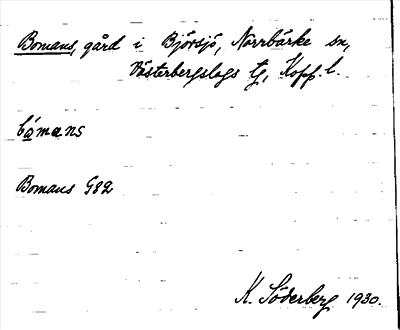 Bomans, gård i Björsjö, Norrbärke sn,
Västerbergslags tg, Kopp. l.
bómans
Bomans G82
K. Söderberg 1930.